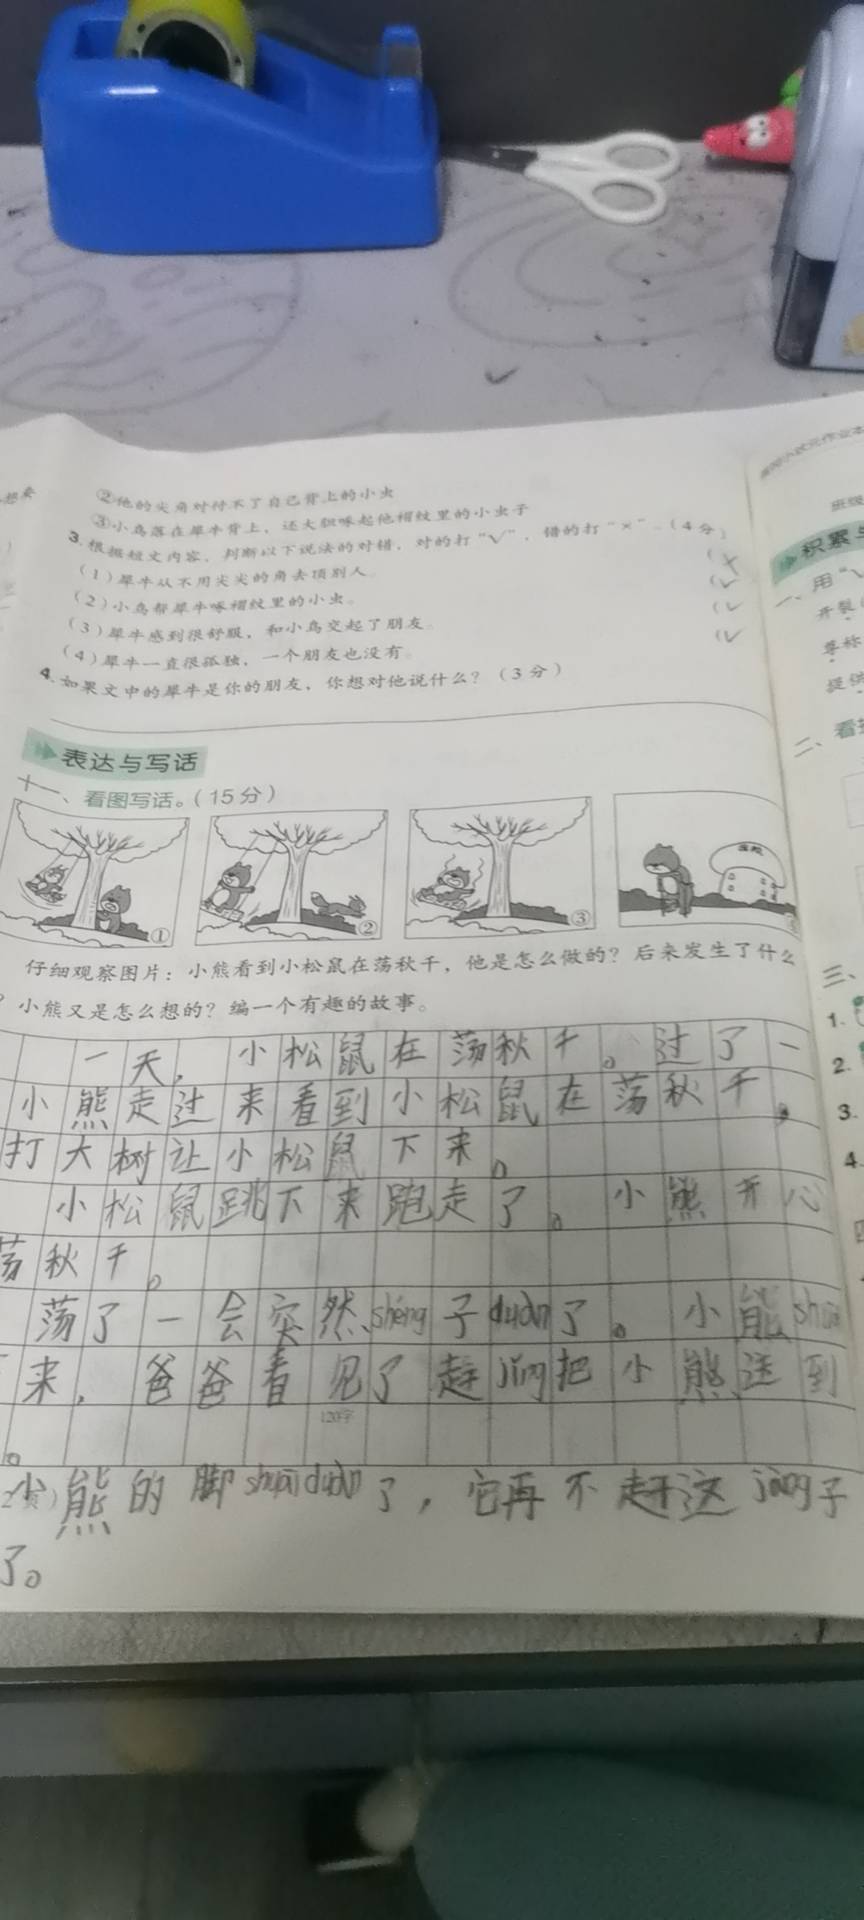 ②他的尖角对付不了自己背上的小虫
③小鸟落在犀牛背上，还大胆啄起他褶纹里的小虫子
3.根据短文内容，判断以下说法的对错，对的打“√”，错的打“×”。(4分)
(1)犀牛从不用尖尖的角去顶别人。(×
(2)小鸟帮犀牛啄褶纹里的小虫。(√
(3)犀牛感到很舒服，和小鸟交起了朋友。(√
(4)犀牛一直很孤独，一个朋友也没有。(√
4.如果文中的犀牛是你的朋友，你想对他说什么？(3分)
表达与写话
十一、看图写话。(15分)
①
②
③
医院
仔细观察图片：小熊看到小松鼠在荡秋千，他是怎么做的？后来发生了什么
？小熊又是怎么想的？编一个有趣的故事。
一天，小松鼠在荡秋千。过了一
小熊走过来看到小松鼠在荡秋千，
打大树让小松鼠下来。
小松鼠跳下来跑走了。小熊开心
荡秋千。
荡了一会突然shéng子duàn了。小熊shuāi
来，爸爸看见了赶jǐng把小熊送到
120字
。
小熊的脚shuāiduàn了，它再不赶这jàng子
了。
班级
积累与
一、用“
开裂
尊称
提供
二、看
三、
1.
2.
3.
4.